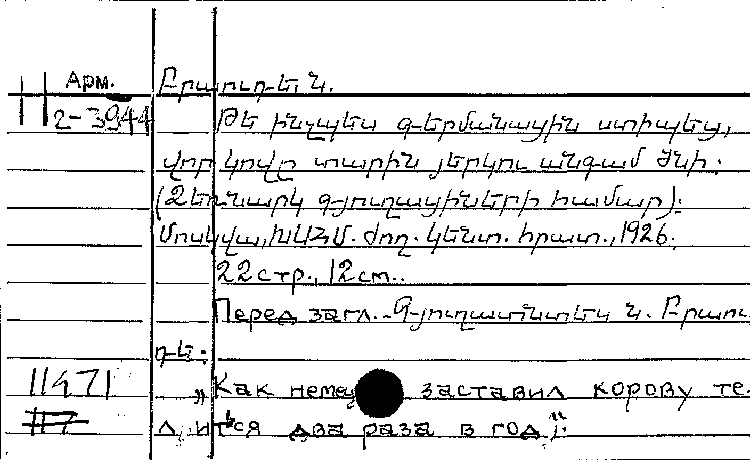 Арм. Բրաուդե, Ն.
2-3944 Թե ինչպես գերմանացին ստիպեց,
վոր կովը տարին յերկու անգամ ծնի:
(Ձեռնարկ գյուղացիների համար):
Մոսկվա, ԽՍՀՄ. ժող. կենտ. հրատ., 1926.
22 стр., 12 см..
Перед загл.. Գյուղատնտես Ն. Բրաու
դե:
11471 „Как немец заставил корову те-
117 литься два раза в год“: